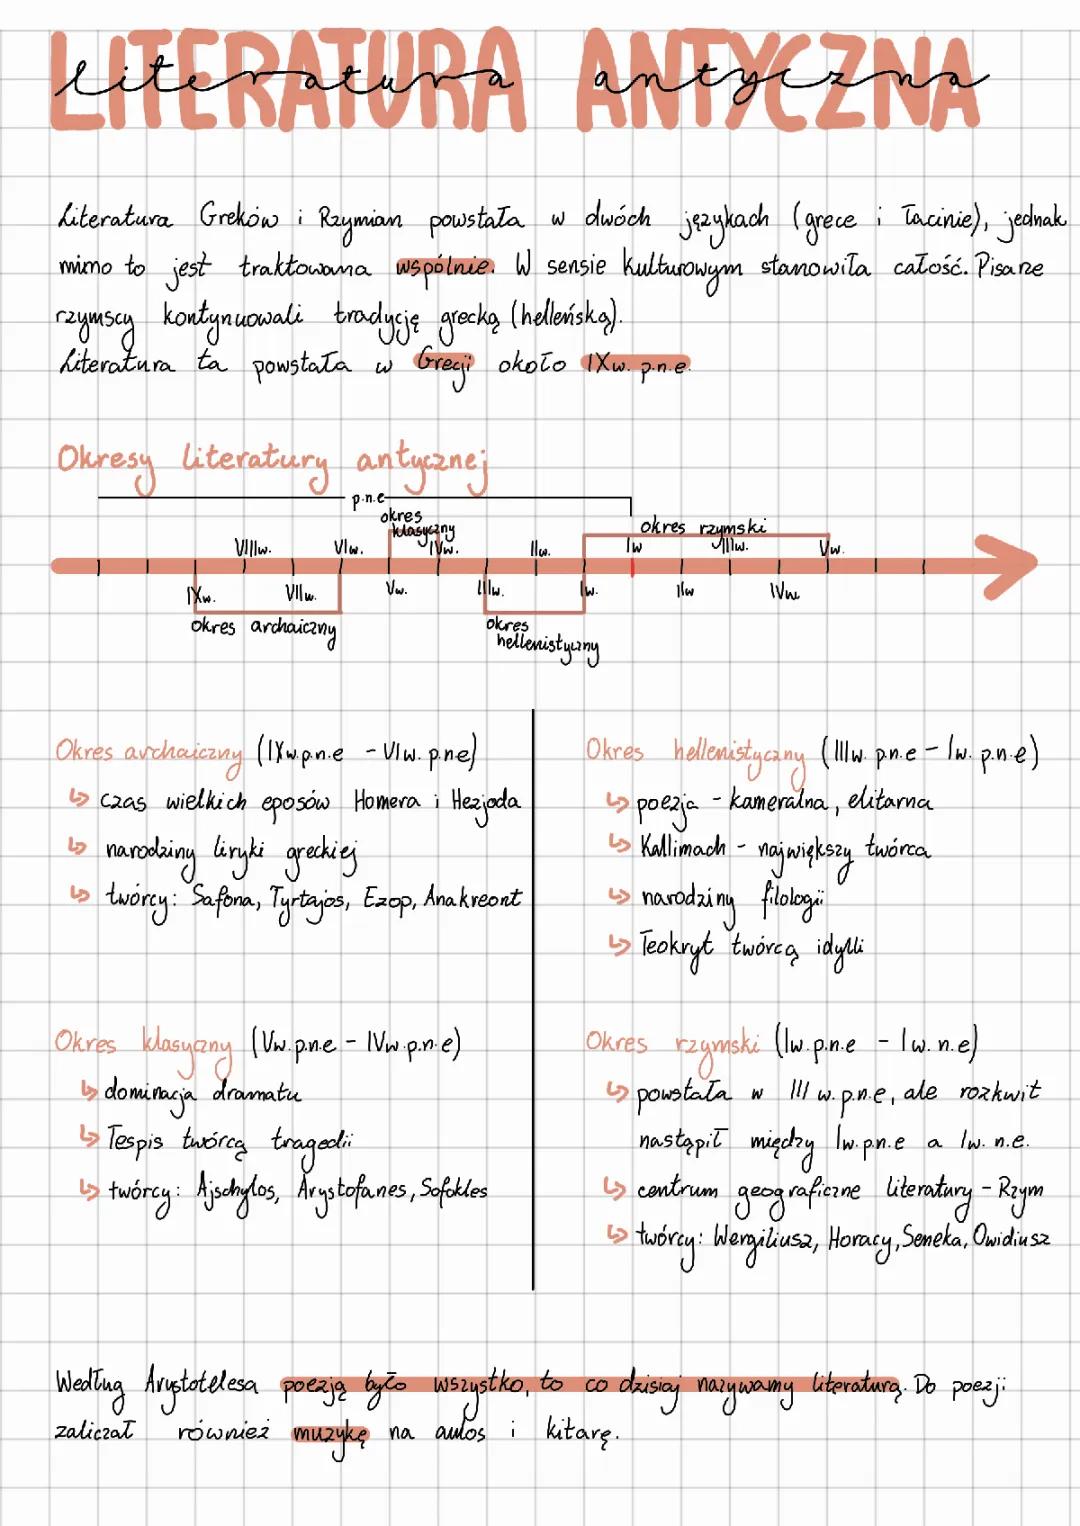 LITERATURA ANTYCZNA
literatura antyczna
Literatura Greków i Rzymian powstała w dwóch językach (grece i łacinie), jednak
mimo to jest traktowana wspólnie. W sensie kulturowym stanowiła całość. Pisarze
rzymscy kontynuowali tradycję grecką (helleńską).
Literatura ta powstała w Grecji około IXw. p.n.e.
Okresy literatury antycznej
p.n.e
okres klasyczny
okres rzymski
VIIIw. VIw. IVw. IIw. Iw IIIw. Vw.
IXw. VIIw. Vw. IIIw. Iw. IIw IVw
okres archaiczny
okres hellenistyczny
Okres archaiczny (IXw.p.n.e - VIw. p.n.e)
↳ czas wielkich eposów Homera i Hezjoda
↳ narodziny liryki greckiej
↳ twórcy: Safona, Tyrtajos, Ezop, Anakreont
Okres hellenistyczny (IIIw. p.n.e - Iw. p.n.e)
↳ poezja - kameralna, elitarna
↳ Kallimach - największy twórca
↳ narodziny filologii
↳ Teokryt twórcą idylli
Okres klasyczny (Vw.p.n.e - IVw.p.n.e)
↳ dominacja dramatu
↳ Tespis twórcą tragedii
↳ twórcy: Ajschylos, Arystofanes, Sofokles
Okres rzymski (Iw.p.n.e - Iw.n.e)
↳ powstała w III w.p.n.e, ale rozkwit
nastąpił między Iw.p.n.e a Iw. n.e.
↳ centrum geograficzne literatury - Rzym
↳ twórcy: Wergiliusz, Horacy, Seneka, Owidiusz
Według Arystotelesa poezją było wszystko, to co dzisiaj nazywamy literaturą. Do poezji
zaliczał również muzykę na aulos i kitarę.